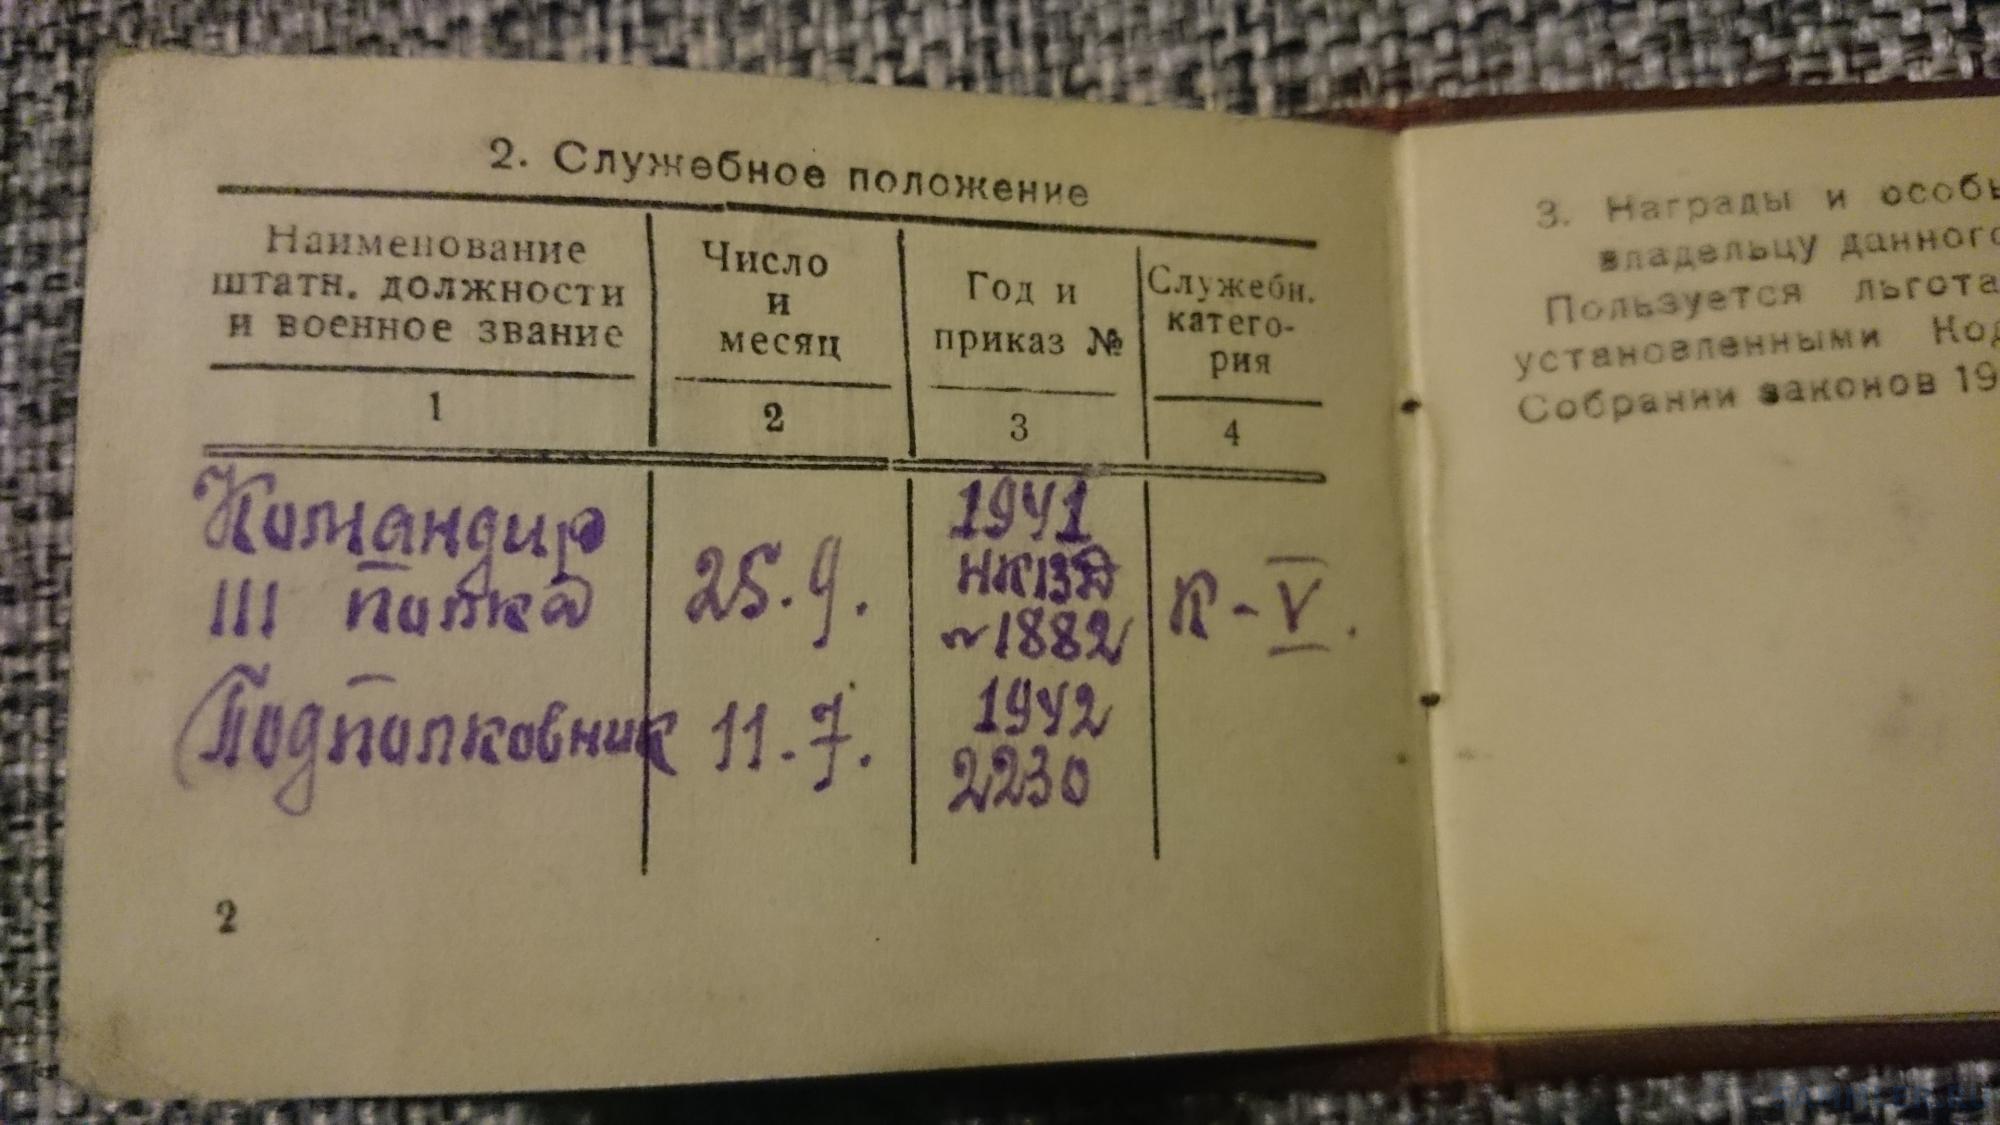 2. Служебное положение
Наименование
штатн. должности
и военное звание
Число
и
месяц
Год и
приказ №
Служебн.
катего-
рия
1
2
3
4
Командир
III полка
25.9.
1941
НКВД
№1882
К-V.
Подполковник
11.7.
1942
2230
2
3. Награды и особы
владельцу данного
Пользуется льгота
установленными Код
Собрании законов 19